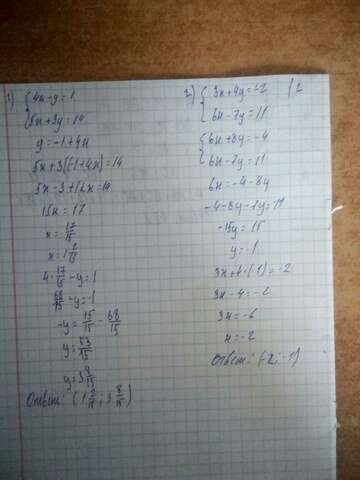 1) { 4x-y=1
5x+3y=14
y=-1+4x
5x+3(-1+4x)=14
5x-3+12x=14
15x=17
x=17/15
x=1 2/15
4·17/15-y=1
68/15-y=1
-y=15/15-68/15
y=53/15
y=3 8/15
Ответ: (1 2/15; 3 8/15)
2) { 3x+4y=-2 |2
6x-7y=11
{ 6x+8y=-4
6x-7y=11
6x=-4-8y
-4-8y-7y=11
-15y=15
y=-1
3x+4·(-1)=-2
3x-4=-2
3x=-6
x=-2
Ответ: (-2; -1)